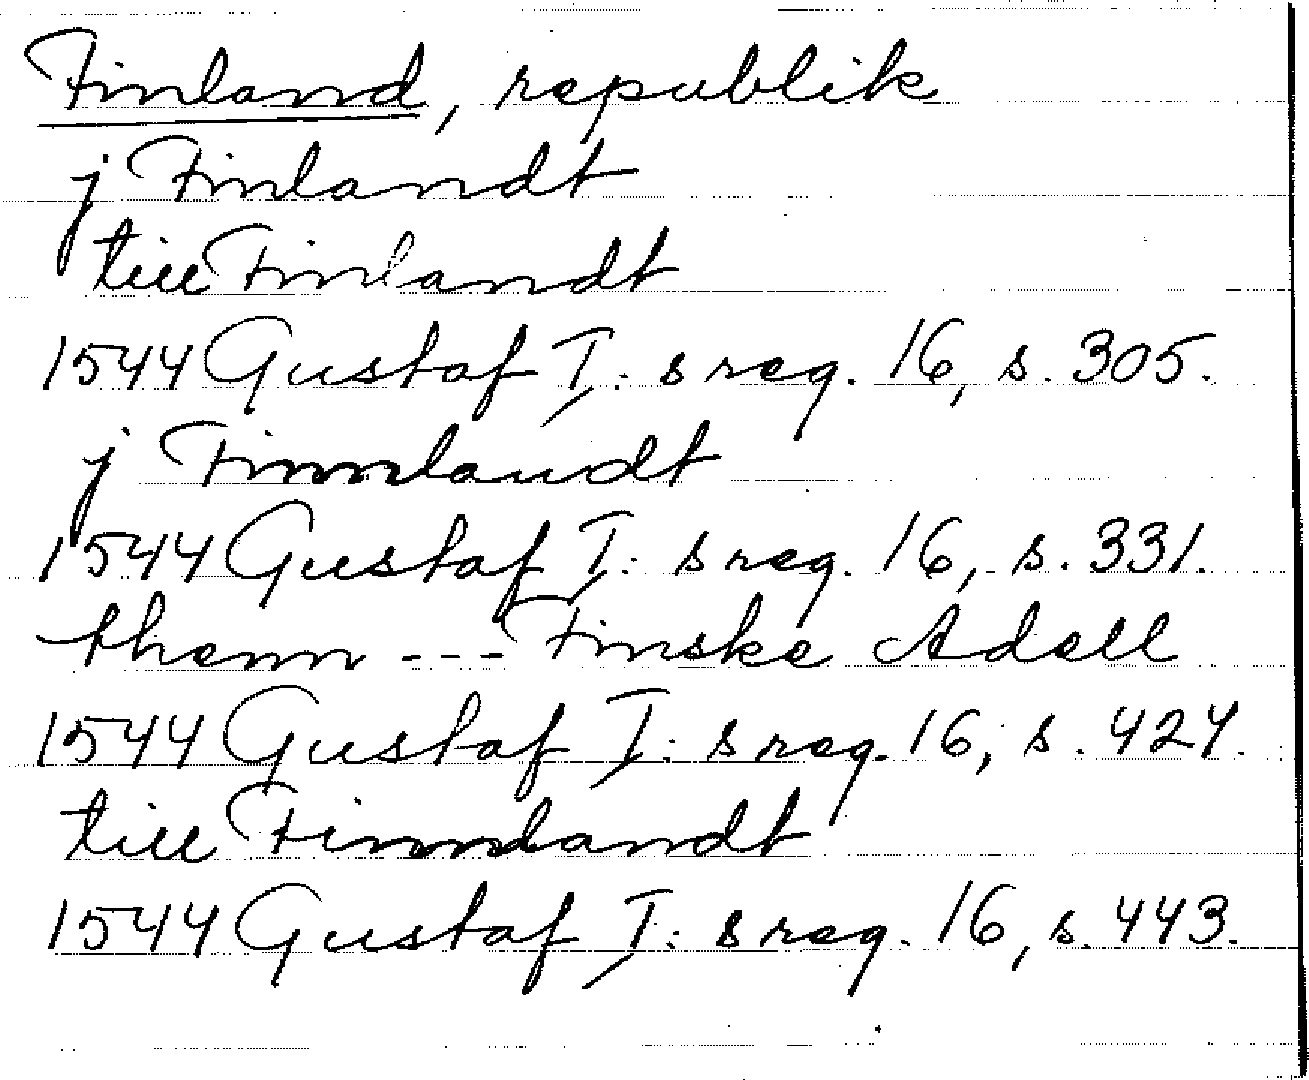 Finland, republik
j Finlandt
till Finlandt
1544 Gustaf I: s reg. 16, s. 305.
j Finnlandt
1544 Gustaf I: s reg. 16, s. 331.
thenn --- Finske Adell
1544 Gustaf I: s reg. 16, s. 424.
till Finnlandt
1544 Gustaf I: s reg. 16, s. 443.